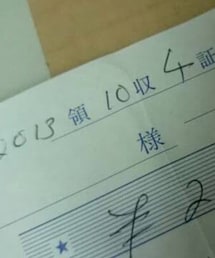 2013 領 10 収 4 証
様
★ ¥2